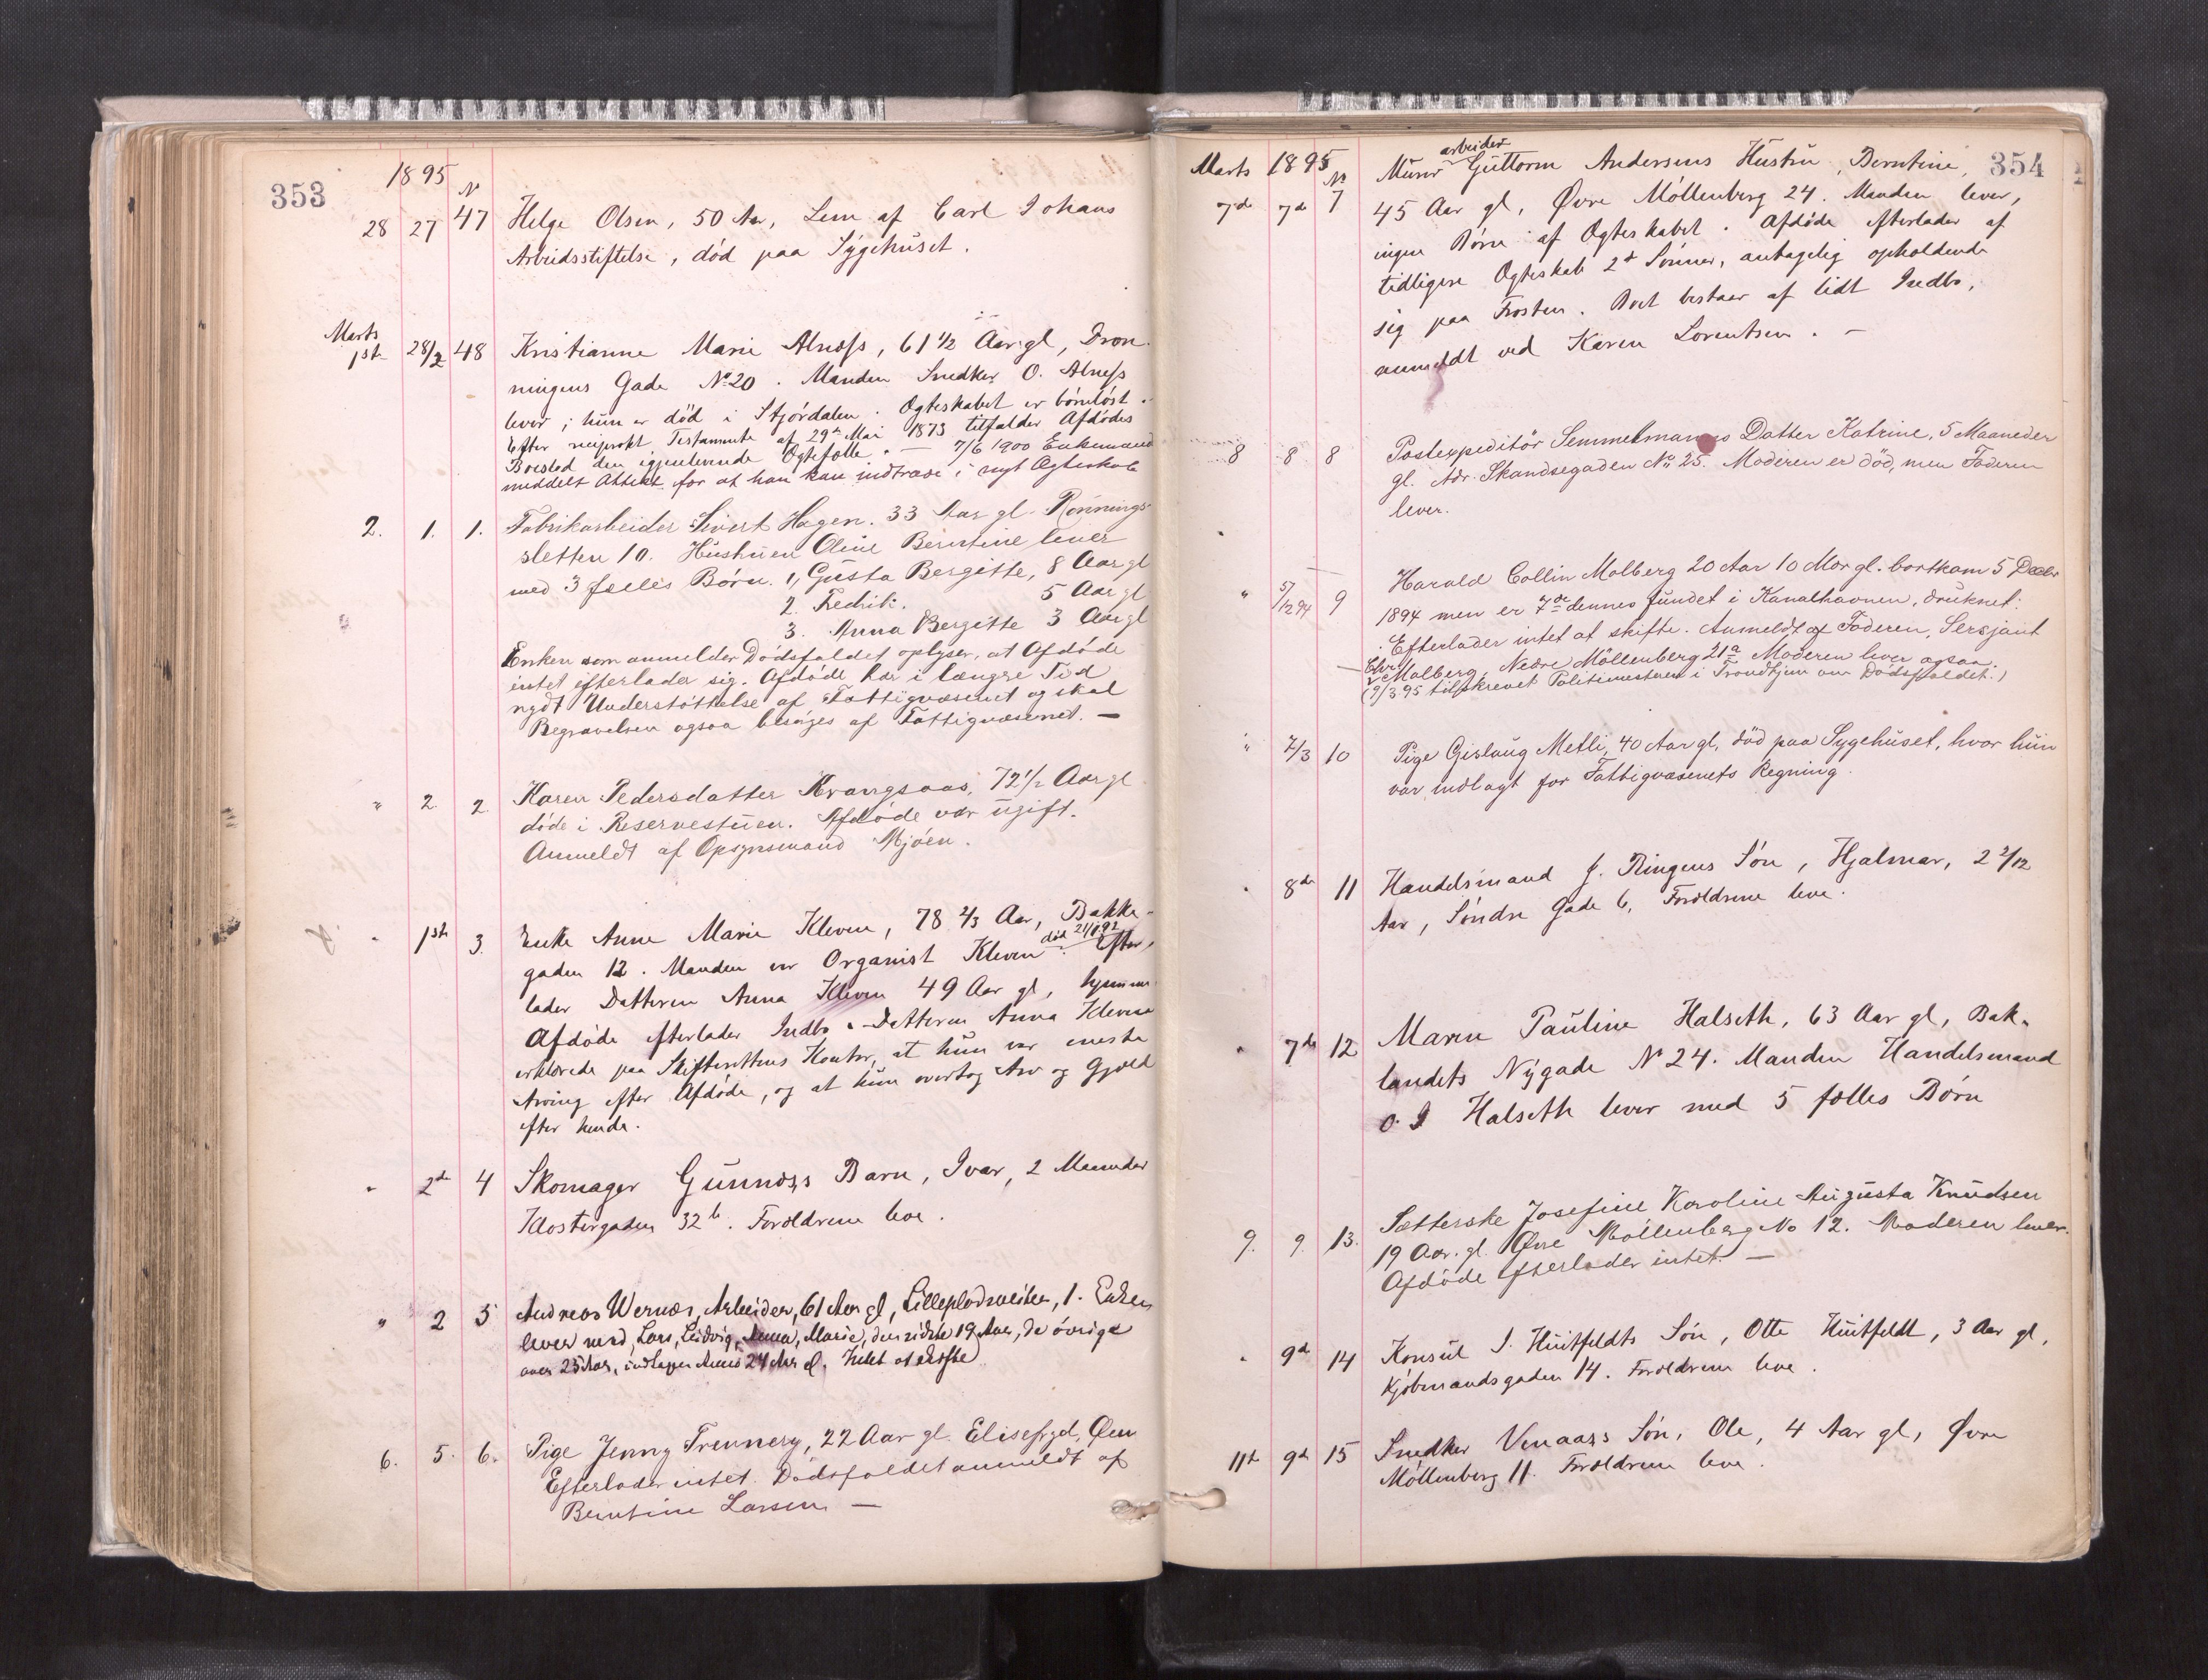 353
1895
N
28 27 47 Helge Olsen, 50 Aar, Lem af Carl Johans
Arbeidsstiftelse, død paa Sygehuset.
Marts
1ste 28/2 48 Kristianne Marie Alness, 61 1/2 Aar gl, Dron-
ningens Gade No 20. Manden Snedker O. Alness
lever; hun er død i Stjørdalen. Ægteskabet er børnløst.
Efter reciprokt Testamente af 29de Mai 1873 tilfalder Afdødes
Boeslod den igjenlevende Ægtefælle. — 7/6 1900 Enkemand
meddelt Attest for at han kan indtræde i nyt Ægteskab
2. 1. 1. Fabrikarbeider Sivert Hagen. 33 Aar gl. Rønnings-
sletten 10. Hustruen Oline Berntine lever
med 3 fælles Børn. 1, Gusta Bergitte, 8 Aar gl
2. Fredrik. 5 Aar gl
3. Anna Bergitte 3 Aar gl
Enken som anmelder Dødsfaldet oplyser, at Afdøde
intet efterlader sig. Afdøde har i længre Tid
nydt Understøttelse af Fattigvæsenet og skal
Begravelsen ogsaa besørges af Fattigvæsenet. —
" 2 2. Karen Pedersdatter Kvangsaas, 72 1/2 Aar gl
døde i Reservestuen. Afdøde var ugift.
Anmeldt af Opsynsmand Mjøen.
" 1ste 3. Enke Anne Marie Kleven, 78 2/3 Aar, Bakke-
død 21/1 92
gaden 12. Manden var Organist Kleven. Efter-
lader Datteren Anna Kleven 49 Aar gl, hjemme
Afdøde efterlader Indbo. Datteren Anna Kleven
erklærede paa Skifterettens Kontor, at hun var eneste
Arving efter Afdøde, og at hun overtog Arv og Gjæld
efter hende.
" 2de 4 Skomager Gunnæss Barn, Ivar, 2 Maaneder
Klostergaden 32b. Forældrene leve.
" 2 5 Andreas Wernæs, Arbeider, 61 Aar gl, Lillepladsveiten, 1. Enken
lever med, Lars, Ludvig, Anna, Marie, den sidste 19 Aar, de øvrige
over 25 Aar, Anna 24 Aar gl. Intet at skifte
6. 5. 6. Pige Jenny Trennery, 22 Aar gl. Elisefrgd, Øen
Efterlader intet. Dødsfaldet anmeldt af
Berntine Larsen —
354
Marts 1895
No
arbeider
7de 7de 7 Murer Guttorm Andersens Hustru, Berntine,
45 Aar gl, Øvre Møllenberg 24. Manden lever,
ingen Børn af Ægteskabet. Afdøde efterlader af
tidligere Ægteskab 2de Sønner, antagelig opholdende
sig paa Frosten. Boet bestaar af lidt Indbo,
anmeldt ved Karen Lorentsen. —
8 8 8 Postexpeditør Semmelmanns Datter Katrine, 5 Maaneder
gl. Adr. Skandsegaden No 25. Moderen er død, men Faderen
lever.
" 5/12 94 9 Harald Collin Malberg 20 Aar 10 Mdr gl. bortkom 5 Decbr
1894 men er 7de dennes fundet i Kanalhavnen, druknet.
Efterlader intet at skifte. Anmeldt af Faderen, Sersjant
Chr. Malberg, Nedre Møllenberg 21a Moderen lever ogsaa.
(9/3 95 tilskrevet Politimesteren i Trondhjem om Dødsfaldet.)
" 7/3 10 Pige Gislaug Metli, 40 Aar gl, død paa Sygehuset, hvor hun
var indlagt for Fattigvæsenets Regning.
" 8de 11 Handelsmand J. Ringens Søn, Hjalmar, 2 2/12
Aar, Søndre Gade 6, Forældrene leve.
" 7de 12 Maren Pauline Halseth, 63 Aar gl, Bak-
landets Nygade No 24. Manden Handelsmand
O. J Halseth lever med 5 fælles Børn
9. 9. 13. Sætterske Josefine Karoline Augusta Knudsen
19 Aar. gl. Øvre Møllenberg No 12. Moderen lever.
Afdøde efterlader intet. —
" 9de 14 Konsul I. Huitfeldts Søn, Otto Huitfeldt, 3 Aar gl,
Kjøbmandsgaden 14. Forældrene leve.
11te 9de 15 Snedker Venaass Søn, Ole, 4 Aar gl, Øvre
Møllenberg 11. Forældrene leve.